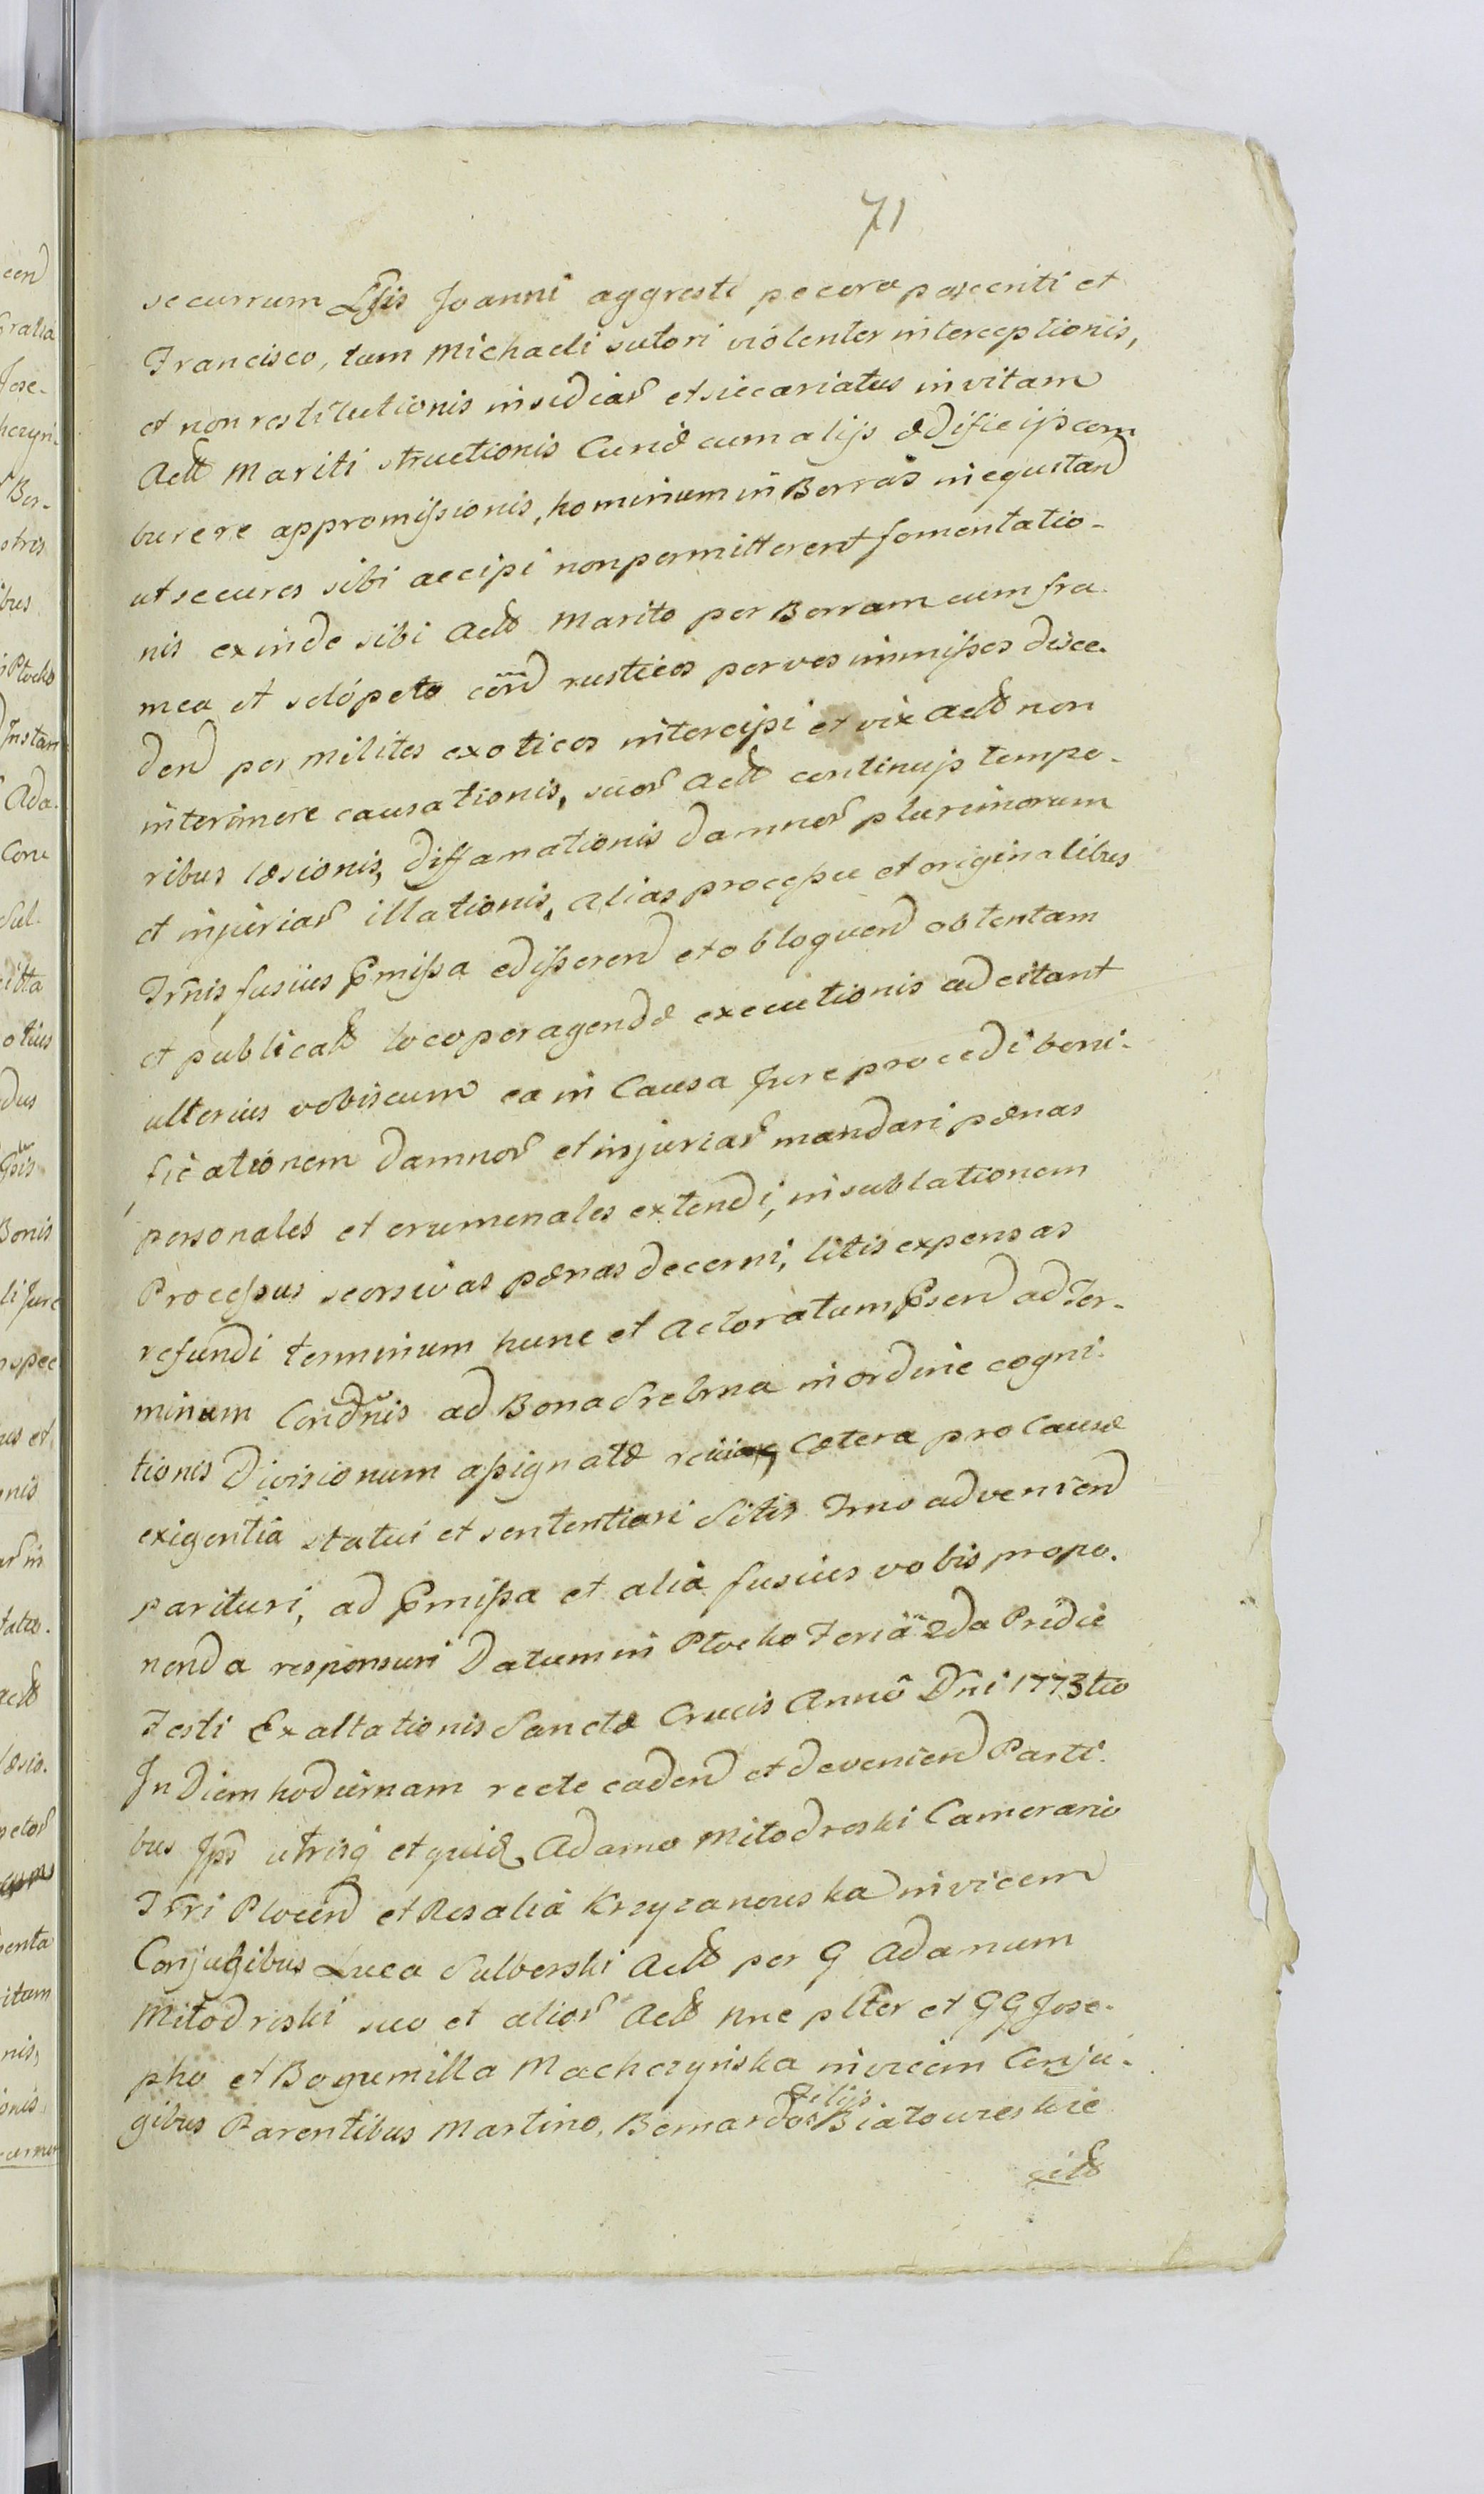 71
securrum Joanni aggresti pecora pascenti et
Francisco, tum Michaeli sutori violenter interceptionis,
et non restitutionis insidiar et siccariatus in vitam
Act Mariti structionis Curiæ cum alijs ædificijs com
burere appromissionis, hominum in Borras inequitand
ut secures sibi accipi non permitterent fomentatio-
nis exinde sibi Act Marito per Borram cum fra-
mea et sclopeto cond rusticos per vos immisses disce-
dend per milites exoticos intercipi et vix act non
interimere causationis, suor Act continuis tempo-
ribus læsionis, diffamationis damnor plurimorum
et injuriar illationis, alias processu et originalibus
Trnis fusius Pmissa edisserend et obloquend obtentam
et publicat loco peragendæ executionis adcitant
ulterius vobiscum ea in Causa Jure procedi boni-
ficationem damnor et injuriar mandari pænas
personales et crumenales extendi, in sublationem
Processus seorsivas pænas decerni, litis expensas
refundi terminum hunc et Actoratum Psend ad Ter-
minum Condnis ad Bona Srebrna in ordine cogni-
tionis Divisionum assignatæ Cætera pro Causæ
exigentia statui et sententiari Sitis Trno adveniend
parituri, ad Pmissa et alia fusius vobis propo-
nenda responsuri Datum in Plocko Feria 2da Pridie
Festi Exaltationis Sanctæ Crucis Anno Dni 1773tio
In Diem hodiernam recte cadend et deveniend Parti-
bus Jpis utrisq et quid Adamo Mitodroski Camerario
Trri Plocen et Rosalia Krzyzanouska invicem
Conjugibus Luca Sulborski Act per G Adamum
Mitodroski suo et alior Act nne plter et GG Jose-
pho et Bogumilla Machczynska invicem Conju-
gibus Parentibus Martino, Bernardo Filijs Biatowieskie
cit